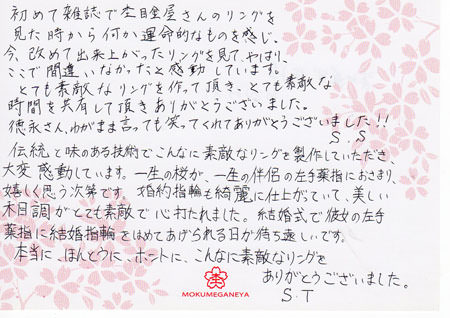 初めて雑誌で杢目金屋さんのリングを
見た時から何か運命的なものを感じ、
今、改めて出来上がったリングを見て、やはり、
ここで間違いなかったと感動しています。
とても素敵なリングを作って頂き、とても素敵な
時間を共有して頂きありがとうございました。
徳永さん、わがまま言っても笑ってくれてありがとうございました!!
S.S
伝統と味のある技術でこんなに素敵なリングを製作していただき、
大変感動しています。一生の桜が、一生の伴侶の左手薬指におさまり、
嬉しく思う次第です。婚約指輪も綺麗に仕上がっていて、美しい
木目調がとても素敵で心打たれました。結婚式で彼女の左手
薬指に結婚指輪をはめてあげられる日が待ち遠しいです。
本当に、ほんとうに、ホントに、こんなに素敵なリングを
ありがとうございました。
S.T
MOKUMEGANEYA